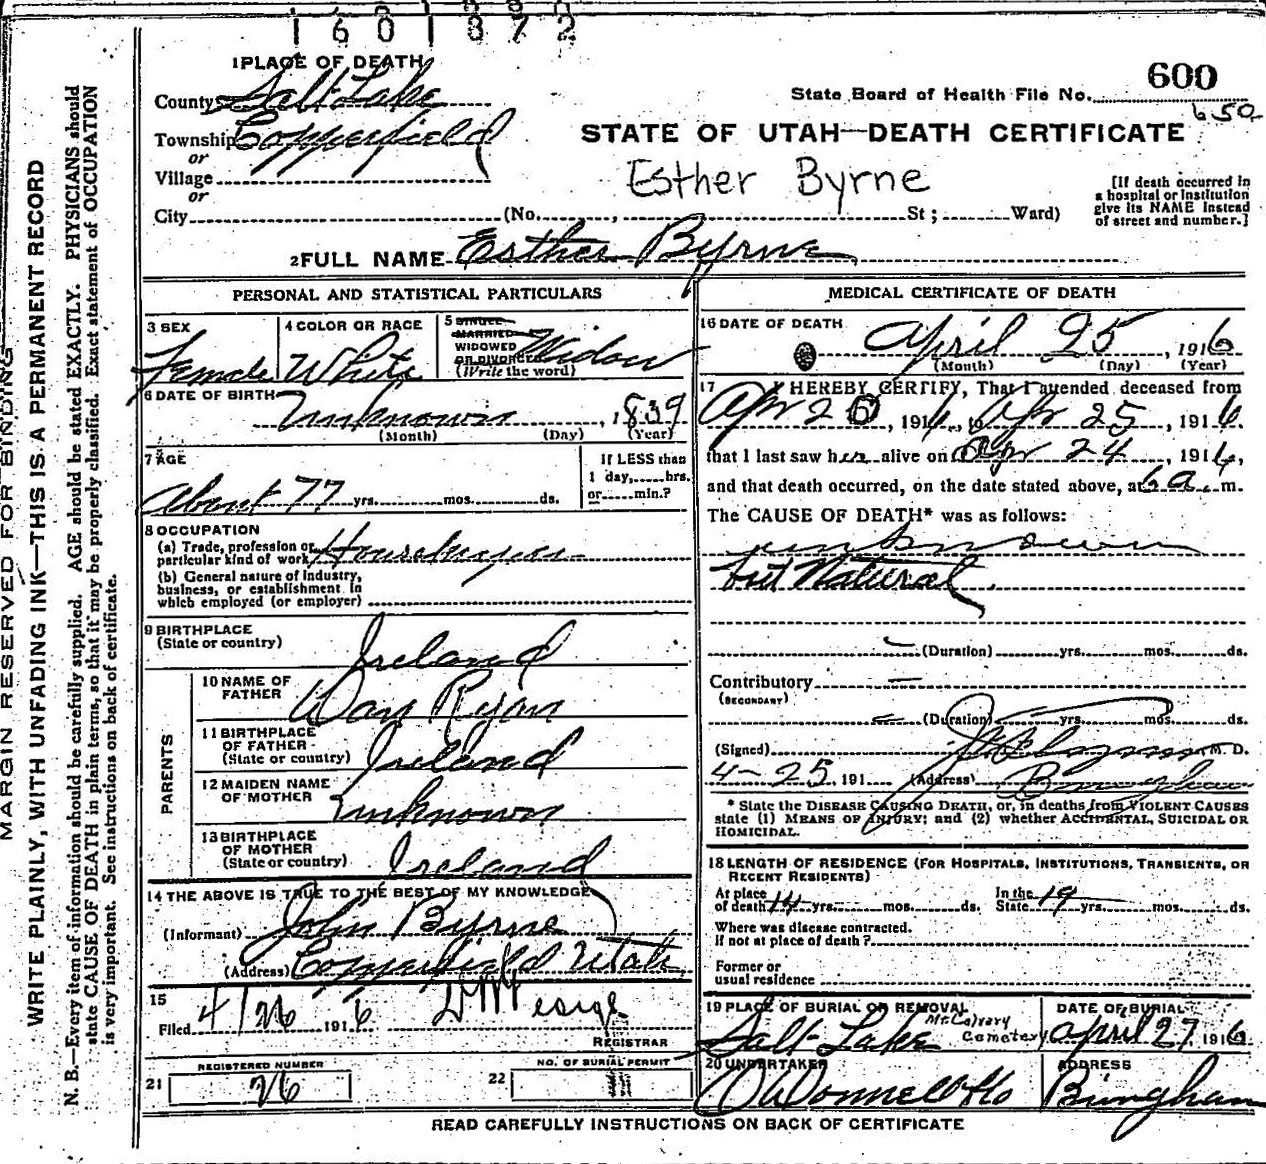 1601372
1 PLACE OF DEATH
600
County Salt Lake
State Board of Health File No.
650
Township Copperfield
STATE OF UTAH—DEATH CERTIFICATE
or
Village
Esther Byrne
or
[If death occurred in
a hospital or institution
give its NAME instead
of street and number.]
City (No. , St ; Ward)
2 FULL NAME Esther Byrne
PERSONAL AND STATISTICAL PARTICULARS
3 SEX
Female
4 COLOR OR RACE
White
5 SINGLE
MARRIED
WIDOWED
OR DIVORCED
(Write the word)
Widow
6 DATE OF BIRTH
Unknown , 1839
(Month) (Day) (Year)
7 AGE
About 77 yrs. mos. ds.
If LESS than
1 day, hrs.
or min.?
8 OCCUPATION
(a) Trade, profession or
particular kind of work
(b) General nature of industry,
business, or establishment in
which employed (or employer)
9 BIRTHPLACE
(State or country)
Ireland
PARENTS
10 NAME OF
FATHER
Dan Ryan
11 BIRTHPLACE
OF FATHER
(State or country)
Ireland
12 MAIDEN NAME
OF MOTHER
Unknown
13 BIRTHPLACE
OF MOTHER
(State or country)
Ireland
14 THE ABOVE IS TRUE TO THE BEST OF MY KNOWLEDGE
(Informant) John Byrne
(Address) Copperfield Utah
15
Filed 4/26 1916
REGISTRAR
REGISTERED NUMBER
21 26
NO. OF BURIAL PERMIT
22
MEDICAL CERTIFICATE OF DEATH
16 DATE OF DEATH
April 25 , 1916
(Month) (Day) (Year)
17 I HEREBY CERTIFY, That I attended deceased from
Apr 20 , 1916, to Apr 25 , 1916.
that I last saw her alive on Apr 24 , 1916,
and that death occurred, on the date stated above, at 6 a. m.
The CAUSE OF DEATH* was as follows:
unknown
but Natural
(Duration) yrs. mos. ds.
Contributory
(SECONDARY)
(Duration) yrs. mos. ds.
(Signed) M. D.
4-25 191 (Address) Bingham
* State the DISEASE CAUSING DEATH, or, in deaths from VIOLENT CAUSES
state (1) MEANS OF INJURY; and (2) whether ACCIDENTAL, SUICIDAL OR
HOMICIDAL.
18 LENGTH OF RESIDENCE (FOR HOSPITALS, INSTITUTIONS, TRANSIENTS, OR
RECENT RESIDENTS)
At place
of death 14 yrs. mos. ds.
In the
State 19 yrs. mos. ds.
Where was disease contracted.
If not at place of death ?
Former or
usual residence
19 PLACE OF BURIAL OR REMOVAL
Salt Lake Mt. Calvary
Cemetery
DATE OF BURIAL
April 27 1916
20 UNDERTAKER
O'Donnell & Co
ADDRESS
Bingham
READ CAREFULLY INSTRUCTIONS ON BACK OF CERTIFICATE
MARGIN RESERVED FOR BINDING
WRITE PLAINLY, WITH UNFADING INK—THIS IS A PERMANENT RECORD
N. B.—Every item of information should be carefully supplied. AGE should be stated EXACTLY. PHYSICIANS should
state CAUSE OF DEATH in plain terms, so that it may be properly classified. Exact statement of OCCUPATION
is very important. See instructions on back of certificate.